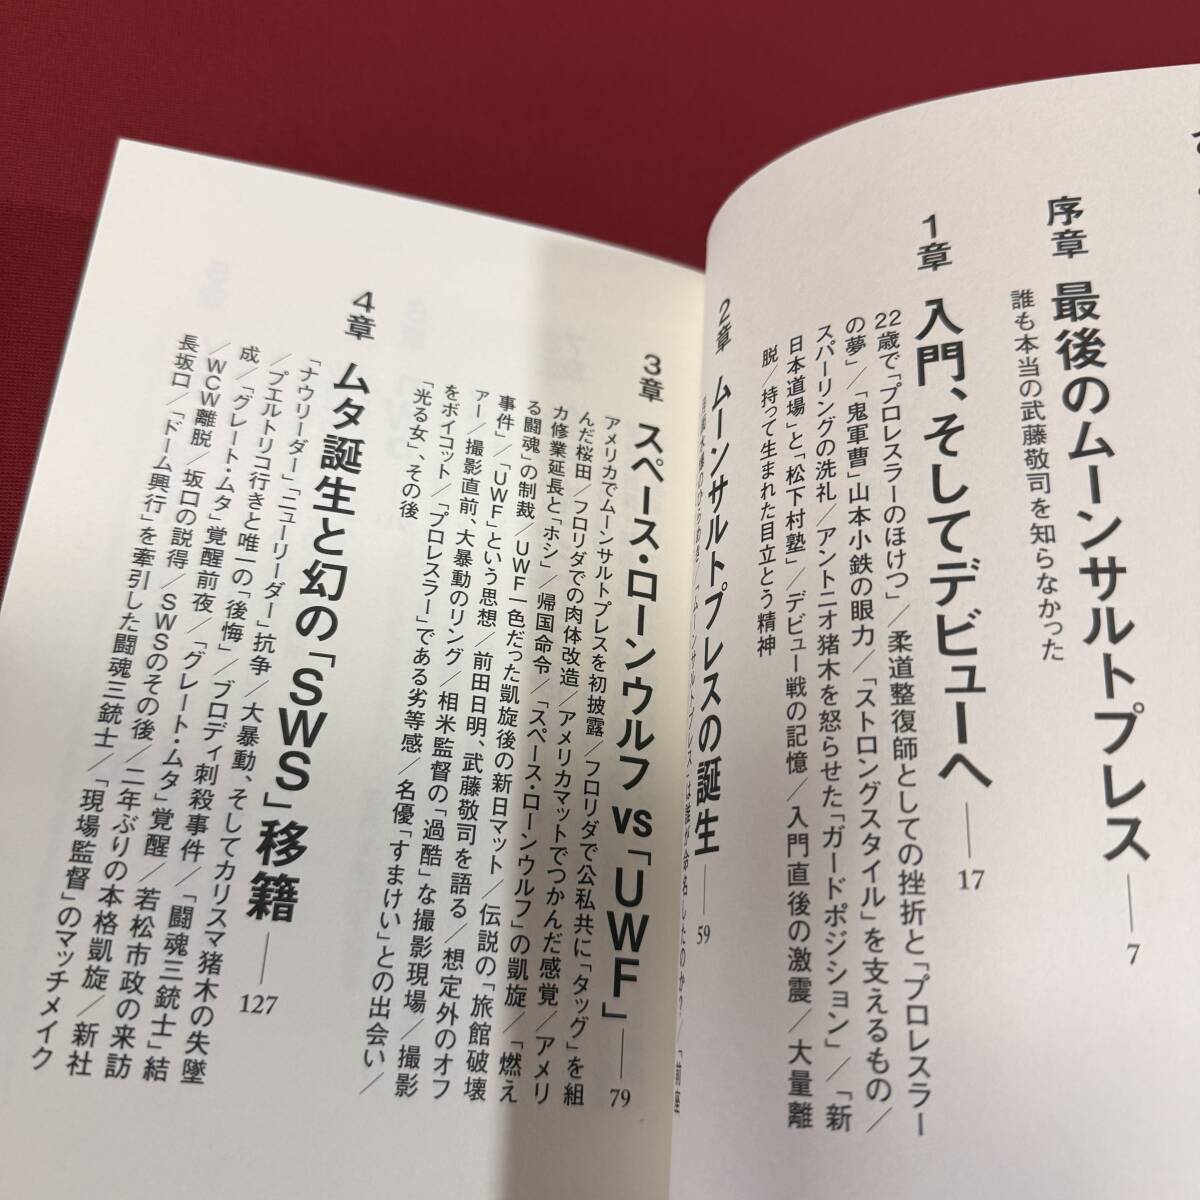 序章 最後のムーンサルトプレス── 7
誰も本当の武藤敬司を知らなかった
1章 入門、そしてデビューへ── 17
22歳で「プロレスラーのほけつ」／柔道整復師としての挫折と「プロレスラー
の夢」／「鬼軍曹」山本小鉄の眼力／「ストロングスタイル」を支えるもの／
スパーリングの洗礼／アントニオ猪木を怒らせた「ガードポジション」／「新
日本道場」と「松下村塾」／デビュー戦の記憶／入門直後の激震／大量離
脱／持って生まれた目立とう精神
2章 ムーンサルトプレスの誕生── 59
「ムーンサルトプレス」は誰が命名したのか？／
3章 スペース・ローンウルフ vs「UWF」── 79
アメリカでムーンサルトプレスを初披露／フロリダで公私共に「タッグ」を組
んだ桜田／フロリダでの肉体改造／アメリカマットでつかんだ感覚／アメリ
カ修業延長と「ホシ」／帰国命令／「スペース・ローンウルフ」の凱旋／「燃え
る闘魂」の制裁／UWF一色だった凱旋後の新日マット／伝説の「旅館破壊
事件」／「UWF」という思想／前田日明、武藤敬司を語る／想定外のオフ
ァー／撮影直前、大暴動のリング／相米監督の「過酷」な撮影現場／撮影
をボイコット／「プロレスラー」である劣等感／名優「すまけい」との出会い／
「光る女」、その後
4章 ムタ誕生と幻の「SWS」移籍── 127
「ナウリーダー」「ニューリーダー」抗争／大暴動、そしてカリスマ猪木の失墜
／プエルトリコ行きと唯一の「後悔」／ブロディ刺殺事件／「闘魂三銃士」結
成／「グレート・ムタ」覚醒前夜／「グレート・ムタ」覚醒／若松市政の来訪
／WCW離脱／坂口の説得／SWSのその後／二年ぶりの本格凱旋／新社
長坂口／「ドーム興行」を牽引した闘魂三銃士／「現場監督」のマッチメイク